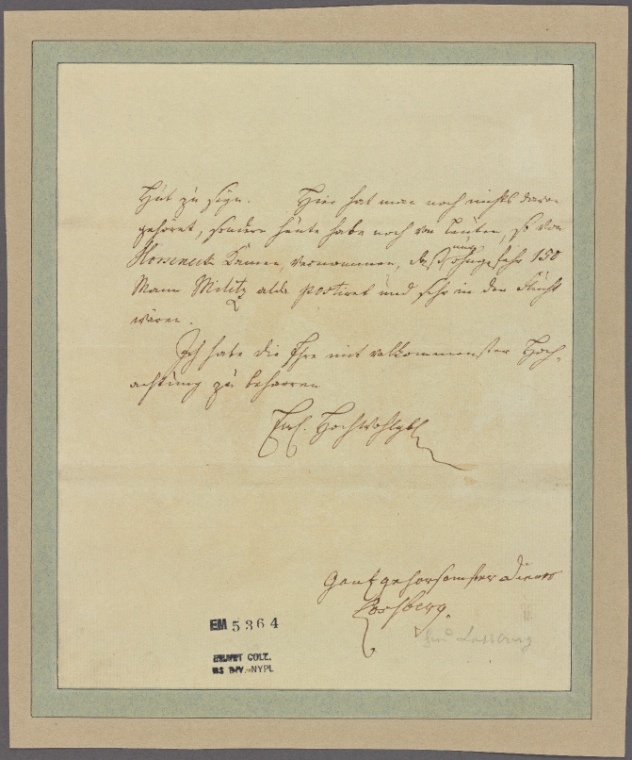 Hut zu seyn. Hier hat man noch nichts davon
gehöret, sondern heute habe noch von Leuten, so von
kamen, vernommen, daß nur ohngefehr 150
Mann Militz alda postiret und sehr in der Furcht
wären.
Ich habe die Ehre mit vollkommenster Hoch-
achtung zu beharren
Ew. Hochwohlgb
Gantz gehorsamster Diener
Lossberg.
EM 5364
EMMET COLL.
NYPL